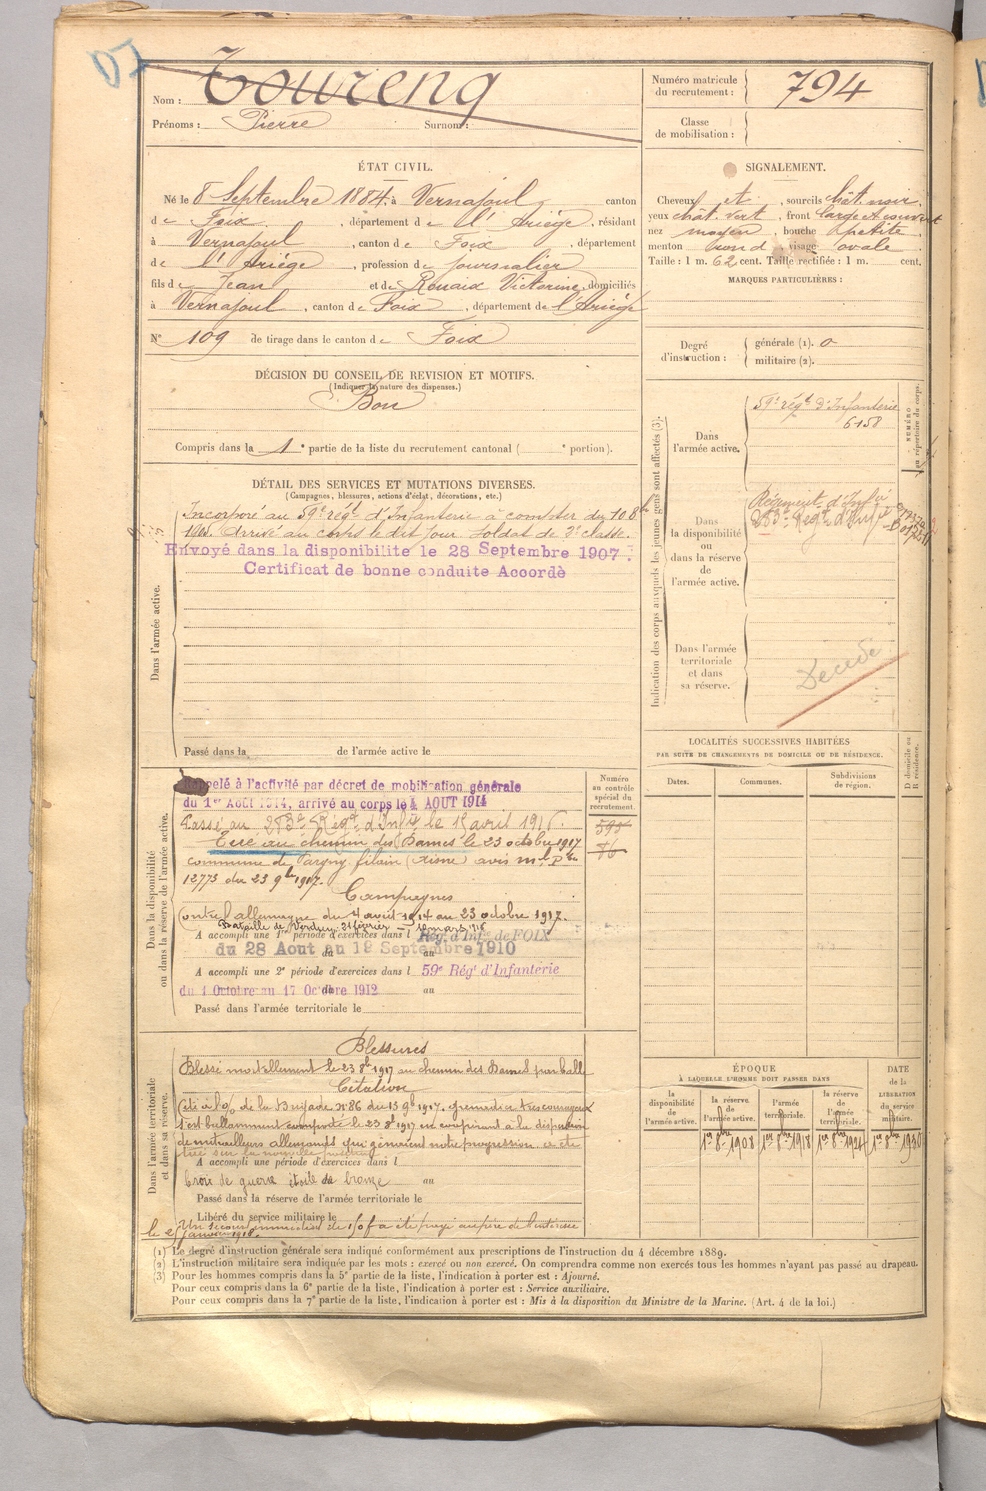 Nom : Toureng
Prénoms : Pierre Surnom :
Numéro matricule
du recrutement : 794
Classe
de mobilisation :
ÉTAT CIVIL.
Né le 8 Septembre 1884 à Vernajoul canton
de Foix, département de l'Ariège, résidant
à Vernajoul, canton de Foix, département
de l'Ariège, profession de journalier
fils de Jean et de Rouaix Victorine, domiciliés
à Vernajoul, canton de Foix, département de l'Ariège
N° 109 de tirage dans le canton de Foix
SIGNALEMENT.
Cheveux et, sourcils chât. noir,
yeux chât. vert, front large et couvert
nez moyen, bouche petite,
menton rond, visage ovale
Taille : 1 m. 62 cent. Taille rectifiée : 1 m. cent.
MARQUES PARTICULIÈRES :
Degré
d'instruction :
générale (1). 0
militaire (2).
DÉCISION DU CONSEIL DE REVISION ET MOTIFS.
(Indiquer la nature des dispenses.)
Bon
Compris dans la 1e partie de la liste du recrutement cantonal ( e portion).
DÉTAIL DES SERVICES ET MUTATIONS DIVERSES.
(Campagnes, blessures, actions d'éclat, décorations, etc.)
Dans l'armée active.
Incorporé au 59e régt d'Infanterie à compter du 10 8bre
1905. Arrivé au corps le dit jour. Soldat de 2e classe.
Envoyé dans la disponibilité le 28 Septembre 1907.
Certificat de bonne conduite Accordé
Passé dans la de l'armée active le
Indication des corps auxquels les jeunes gens sont affectés (3).
NUMÉRO
au répertoire du corps.
Dans
l'armée active.
59e régt d'Infanterie
6158
Dans
la disponibilité
ou
dans la réserve
de
l'armée active.
Régiment d'Infie
283e Régt d'Infie
Dans l'armée
territoriale
et dans
sa réserve.
Décédé
Dans la disponibilité
ou dans la réserve de l'armée active.
Numéro
au contrôle
spécial du
recrutement.
595
Rappelé à l'activité par décret de mobilisation générale
du 1er Août 1914, arrivé au corps le 4 AOUT 1914
Passé au 283e Régt d'Infie le 15 avril 1916.
Tué au chemin des Dames le 23 octobre 1917
commune de Pargny filain (Aisne) avis mel P
12773 du 23 9bre 1917.
Campagnes
Contre l'allemagne du 4 août 1914 au 23 octobre 1917.
Bataille de Verdun 21 février – mars 1916
A accompli une 1re période d'exercices dans l Rég. d'Infie de FOIX
du 28 Aout au 19 Septembre 1910
A accompli une 2e période d'exercices dans l 59e Régt d'Infanterie
du 1 Octobre au 17 Octobre 1912 au
Passé dans l'armée territoriale le
LOCALITÉS SUCCESSIVES HABITÉES
PAR SUITE DE CHANGEMENTS DE DOMICILE OU DE RÉSIDENCE.
Dates.
Communes.
Subdivisions
de région.
D domicile ou
R résidence.
Dans l'armée territoriale
et dans sa réserve.
Blessures
Blessé mortellement le 23 8bre 1917 au chemin des Dames par balle
Citation
Cité à l'o/ de la Brigade N° 86 du 13 9bre 1917. grenadier très courageux
s'est brillamment comporté le 23 8bre 1917 en coopérant à la dispersion
de mitrailleurs allemands qui gênaient notre progression a été
tué sur la nouvelle
A accompli une période d'exercices dans l
Croix de guerre étoile de bronze au
Passé dans la réserve de l'armée territoriale le
Libéré du service militaire le
Un secours immédiat de 150f a été payé au père de l'intéressé
le 25 janvier 1918.
ÉPOQUE
À LAQUELLE L'HOMME DOIT PASSER DANS
la
disponibilité
de
l'armée active.
la réserve
de
l'armée active.
l'armée
territoriale.
la réserve
de
l'armée
territoriale.
DATE
de la
LIBÉRATION
du service
militaire.
1er 8bre 1908
1er 8bre 1918
1er 8bre 1924
1er 8bre 1930
(1) Le degré d'instruction générale sera indiqué conformément aux prescriptions de l'instruction du 4 décembre 1889.
(2) L'instruction militaire sera indiquée par les mots : exercé ou non exercé. On comprendra comme non exercés tous les hommes n'ayant pas passé au drapeau.
(3) Pour les hommes compris dans la 5e partie de la liste, l'indication à porter est : Ajourné.
Pour ceux compris dans la 6e partie de la liste, l'indication à porter est : Service auxiliaire.
Pour ceux compris dans la 7e partie de la liste, l'indication à porter est : Mis à la disposition du Ministre de la Marine. (Art. 4 de la loi.)